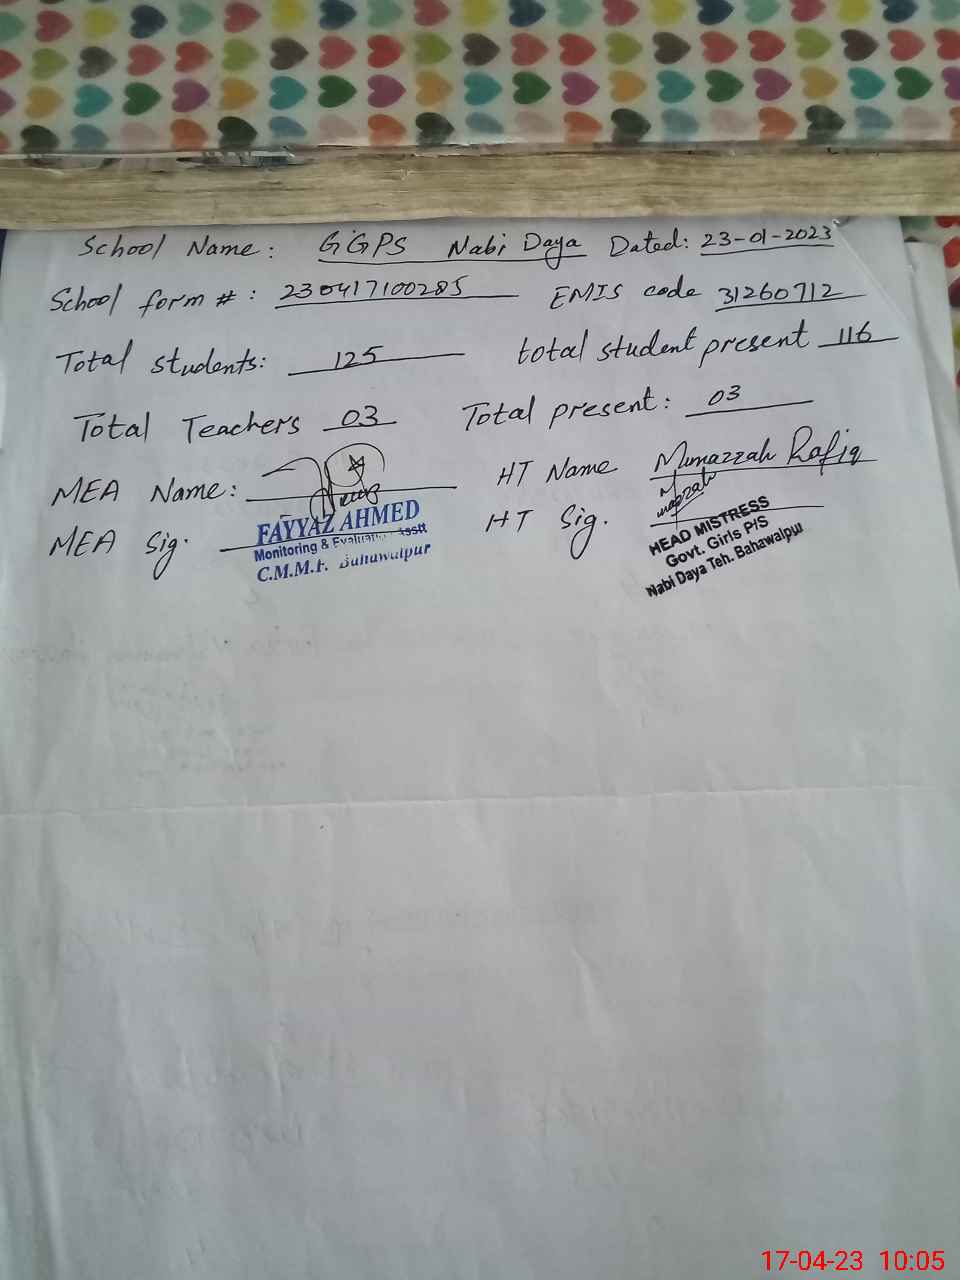 School Name: GGPS Nabi Daya Dated: 23-01-2023
School form #: 230417100285 EMIS code 31260712
Total students: 125 total student present 116
Total Teachers 03 Total present: 03
MEA Name: HT Name Munazzah Rafiq
MEA Sig. HT Sig. Munazzah
FAYYAZ AHMED
Monitoring & Evaluation Asstt
C.M.M.F. Bahawalpur
HEAD MISTRESS
Govt. Girls P/S
Nabi Daya Teh. Bahawalpur
17-04-23 10:05